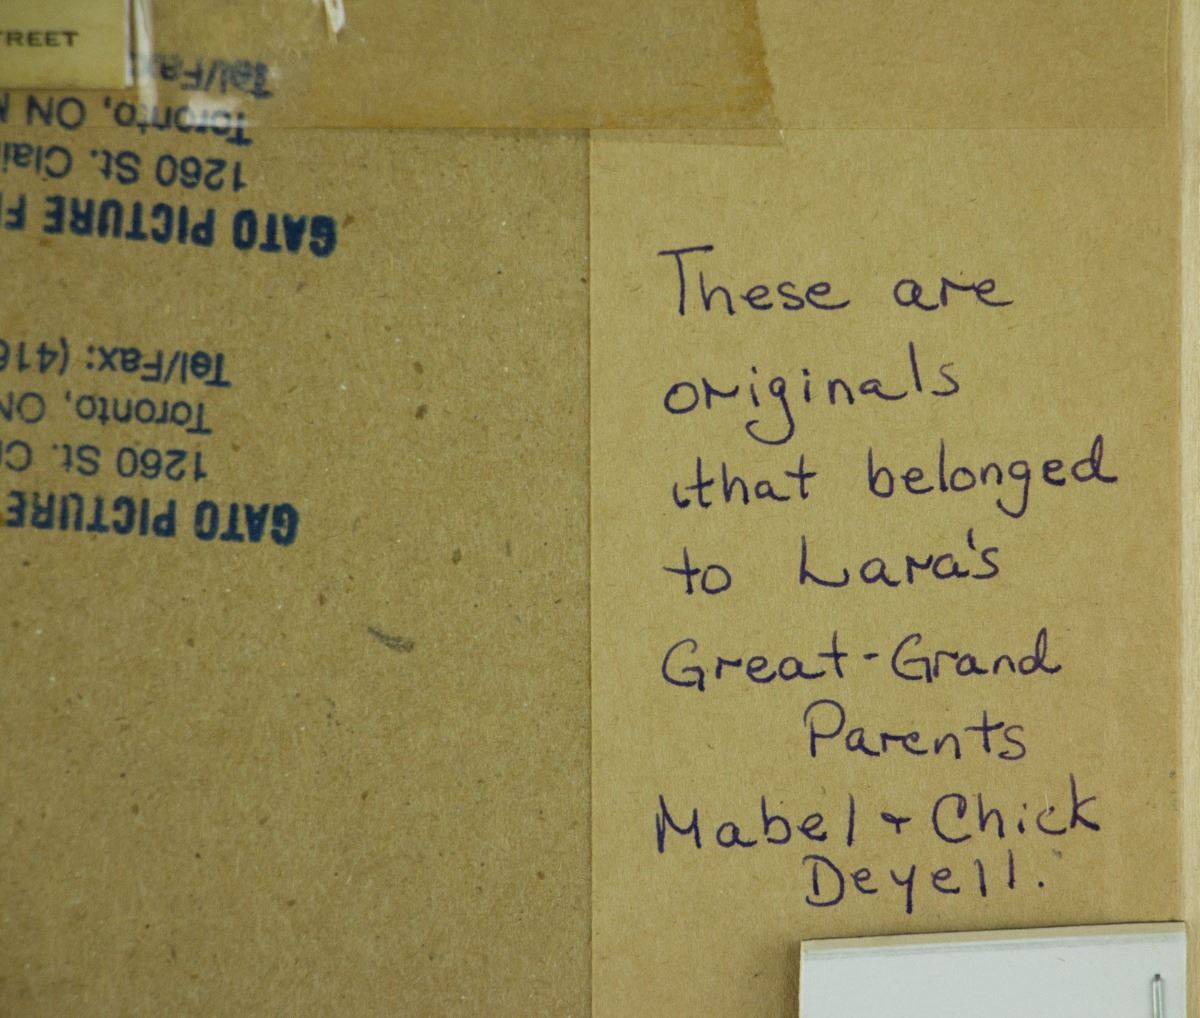 TREET
Tel/Fax
Toronto, ON
1260 St. Clai
GATO PICTURE F
Tel/Fax: (416
Toronto, ON
1260 St. C
GATO PICTURE
These are
originals
that belonged
to Lara's
Great-Grand
Parents
Mabel + Chick
Deyell.